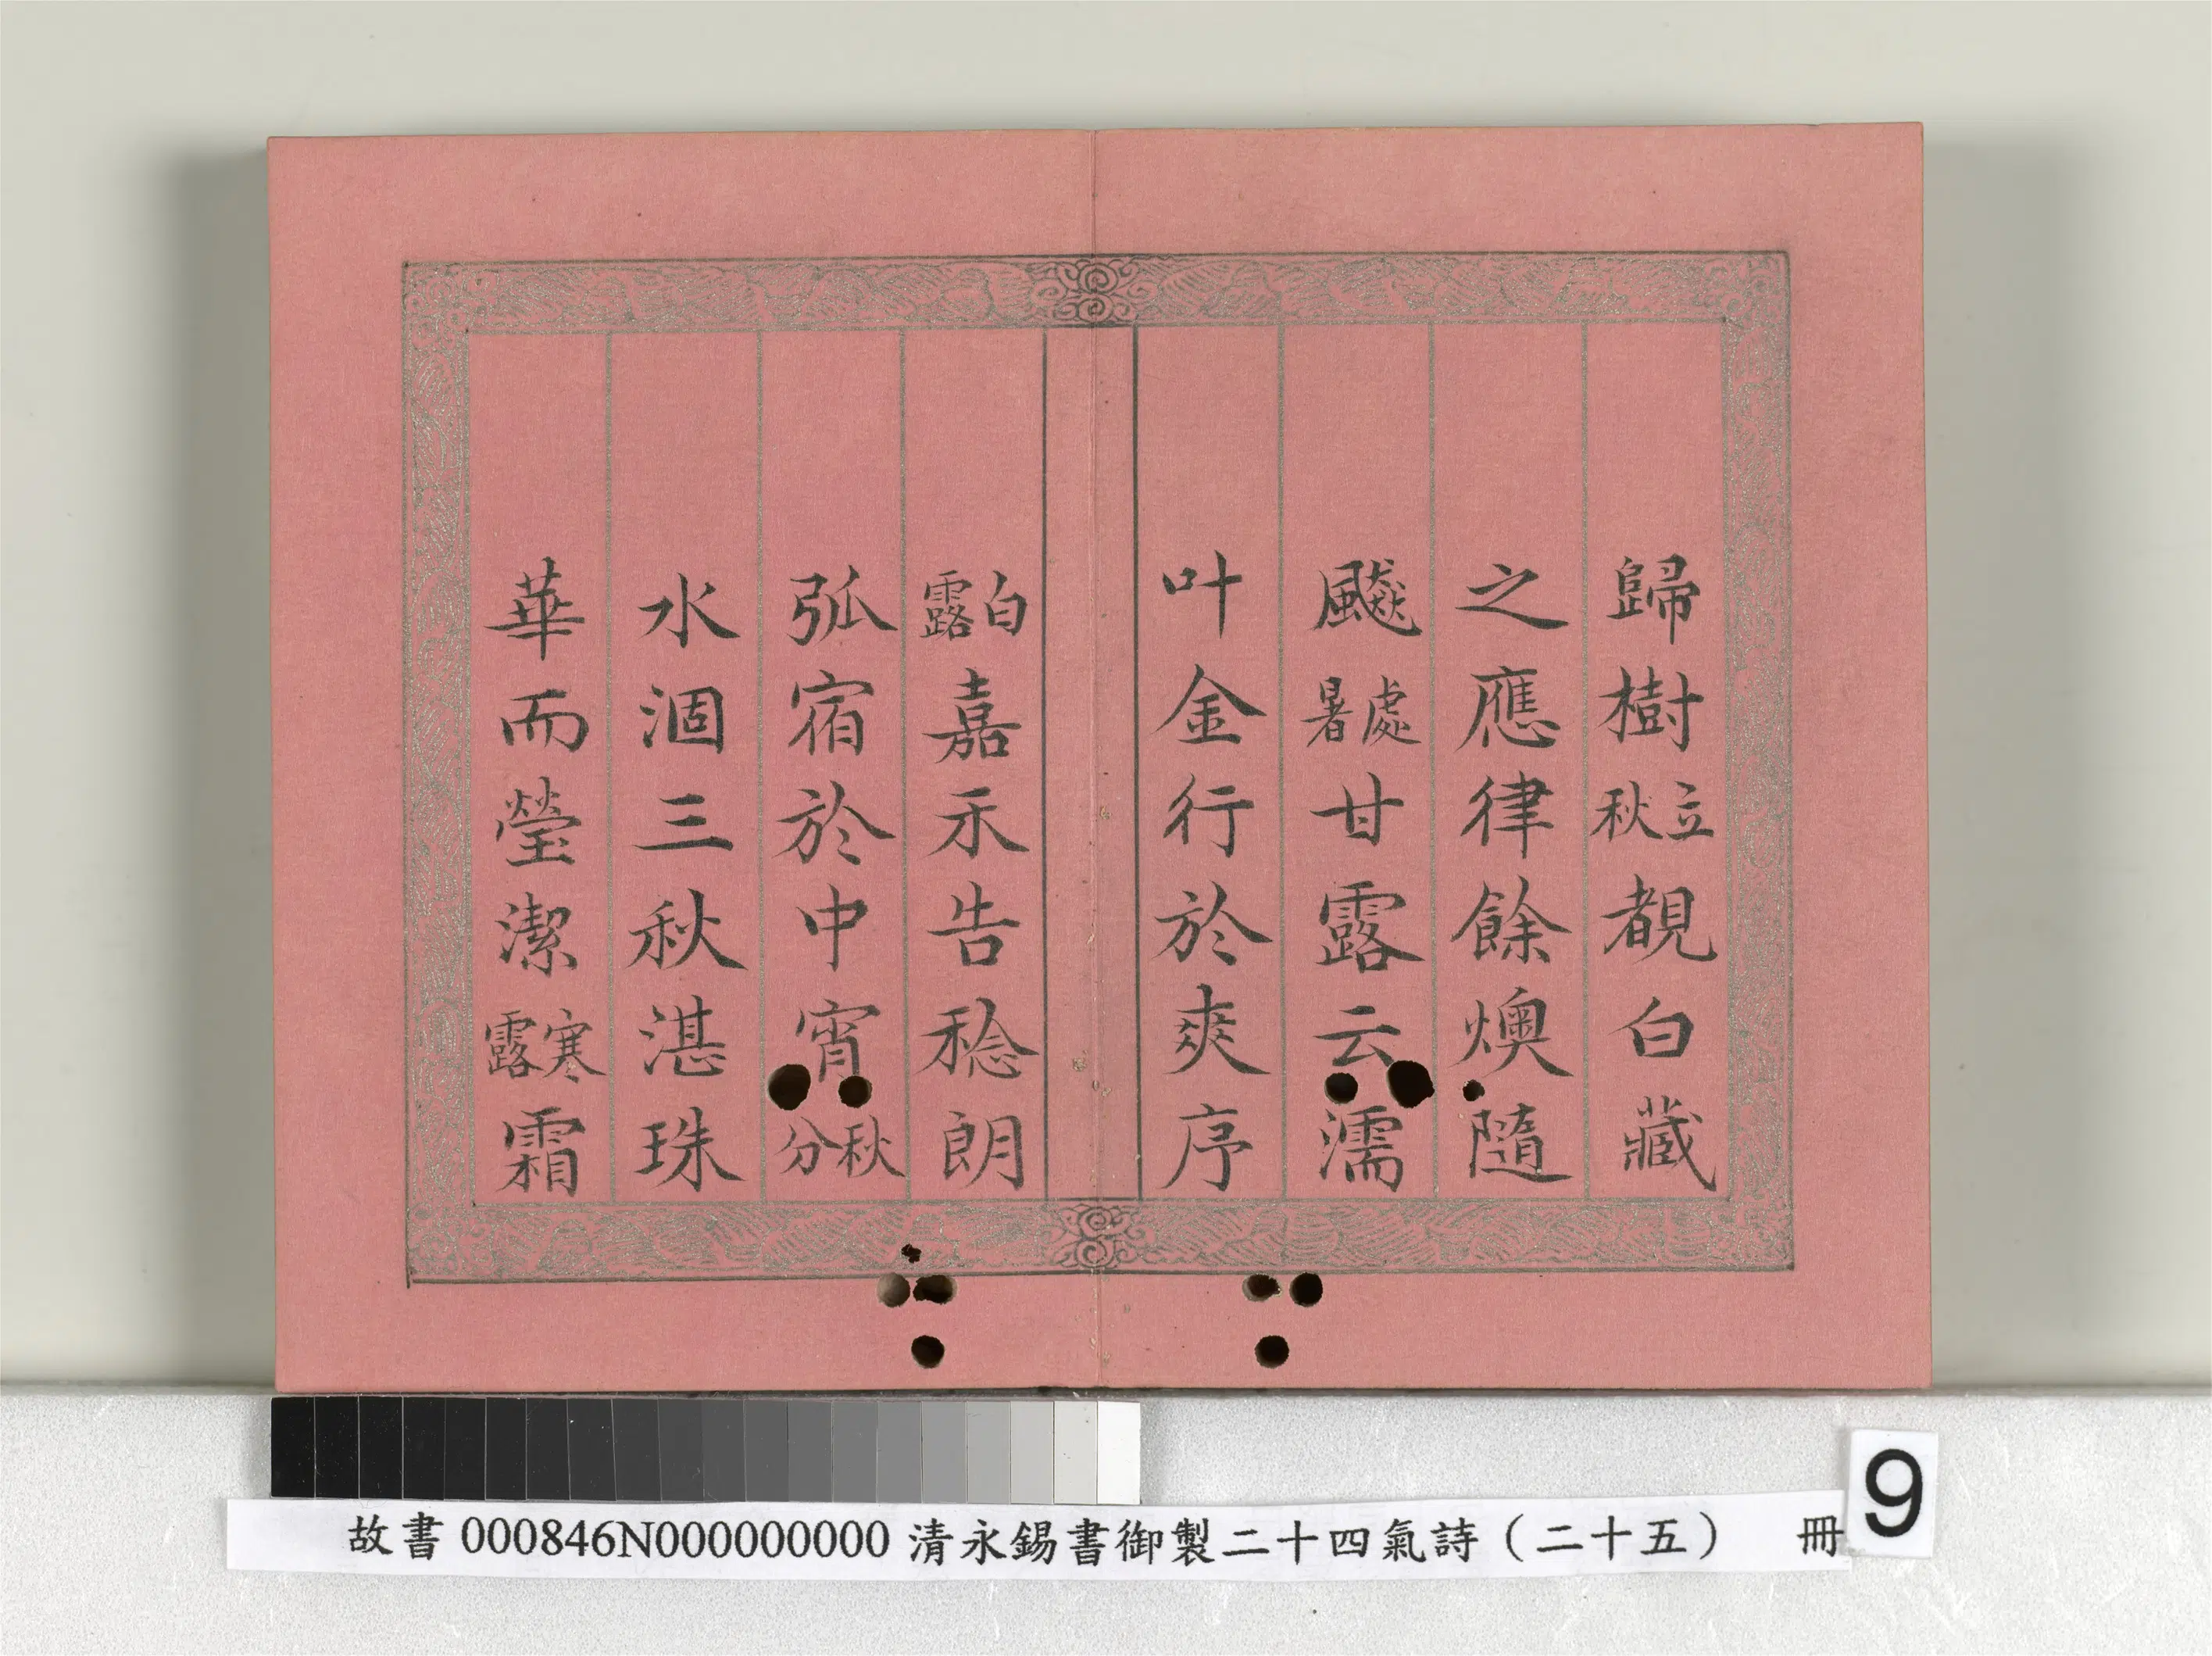 歸樹立秋覩白藏
之應律餘燠隨
飇處暑甘露云濡
叶金行於爽序
白露嘉禾告稔朗
弧宿於中宵秋分
水涸三秋湛珠
華而瑩潔寒露霜
故書 000846N000000000 清永錫書御製二十四氣詩（二十五） 冊
9